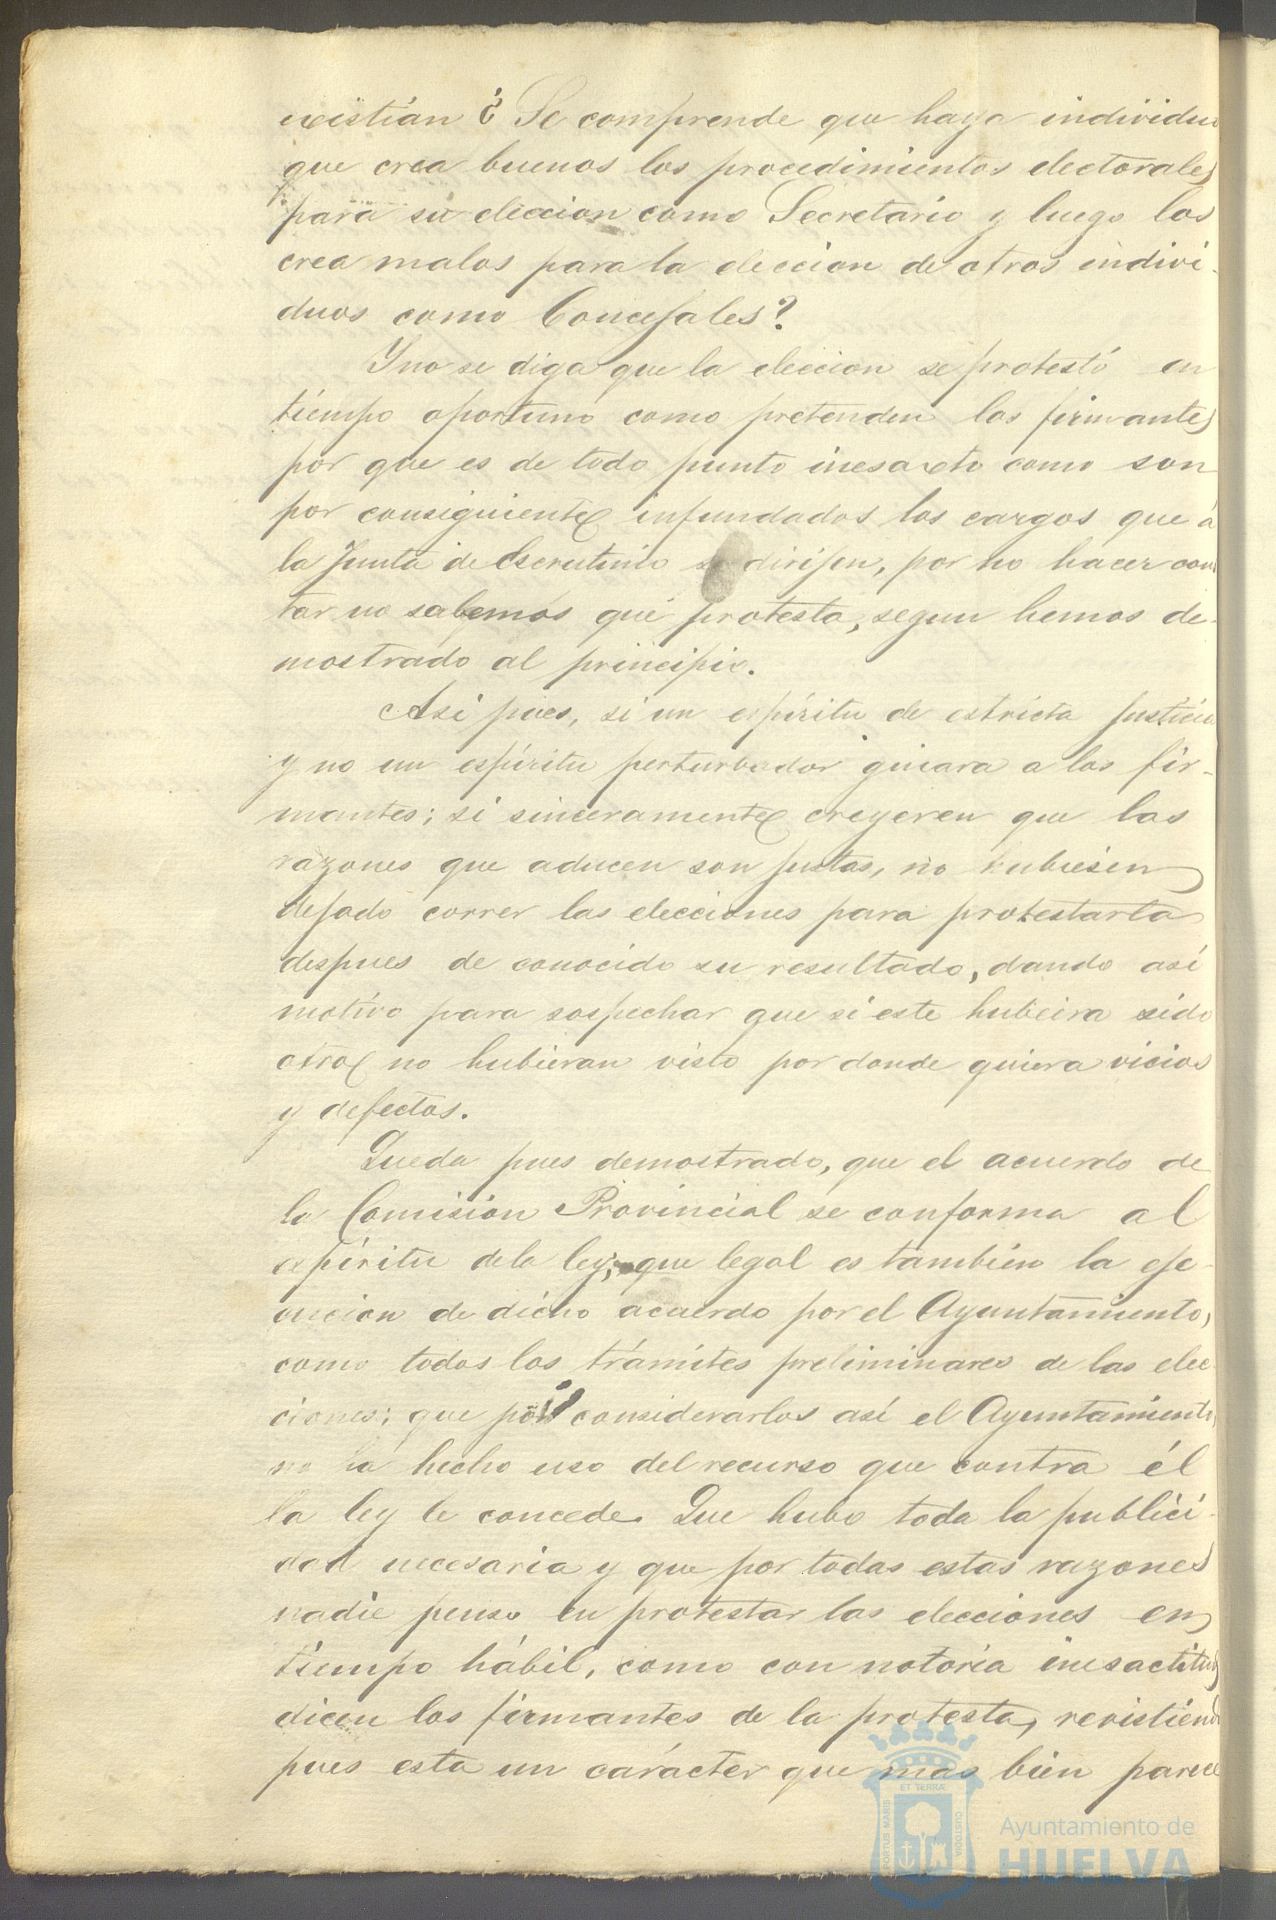 existían ¿ Se comprende que haya individuo
que crea buenos los procedimientos electorales
para su eleccion como Secretario y luego los
crea malos para la eleccion de otros indivi-
duos como Concejales?
Y no se diga que la eleccion se protestó en
tiempo oportuno como pretenden los firmantes
por que es de todo punto inesacto como son
por consiguiente infundados los cargos que á
la Junta de Escrutinio se dirijen, por no hacer cons
tar no sabemos qué protesta, segun hemos de-
mostrado al principio.
Asi pues, si un espíritu de estricta justicia
y no un espíritu perturbador guiara a los fir-
mantes; si sinceramente creyeren que las
razones que aducen son justas, no hubiesen
dejado correr las elecciones para protestarla
despues de conocido su resultado, dando así
motivo para sospechar que si este hubiera sido
otro no hubieran visto por donde quiera vicios
y defectos.
Queda pues demostrado, que el acuerdo de
la Comisión Provincial se conforma al
espíritu de la ley; que legal es también la eje-
cucion de dicho acuerdo por el Ayuntamiento,
como todos los trámites preliminares de las elec
ciones; que por considerarlos así el Ayuntamiento,
no ha hecho uso del recurso que contra él
la ley le concede. Que hubo toda la publici-
dad necesaria y que por todas estas razones
nadie penso en protestar las elecciones en
tiempo hábil, como con notoria inesactitud
dicen los firmantes de la protesta, revistiendo
pues esta un carácter que mas bien parece
PORTUS MARIS ET TERRÆ CUSTODIA
Ayuntamiento de
HUELVA